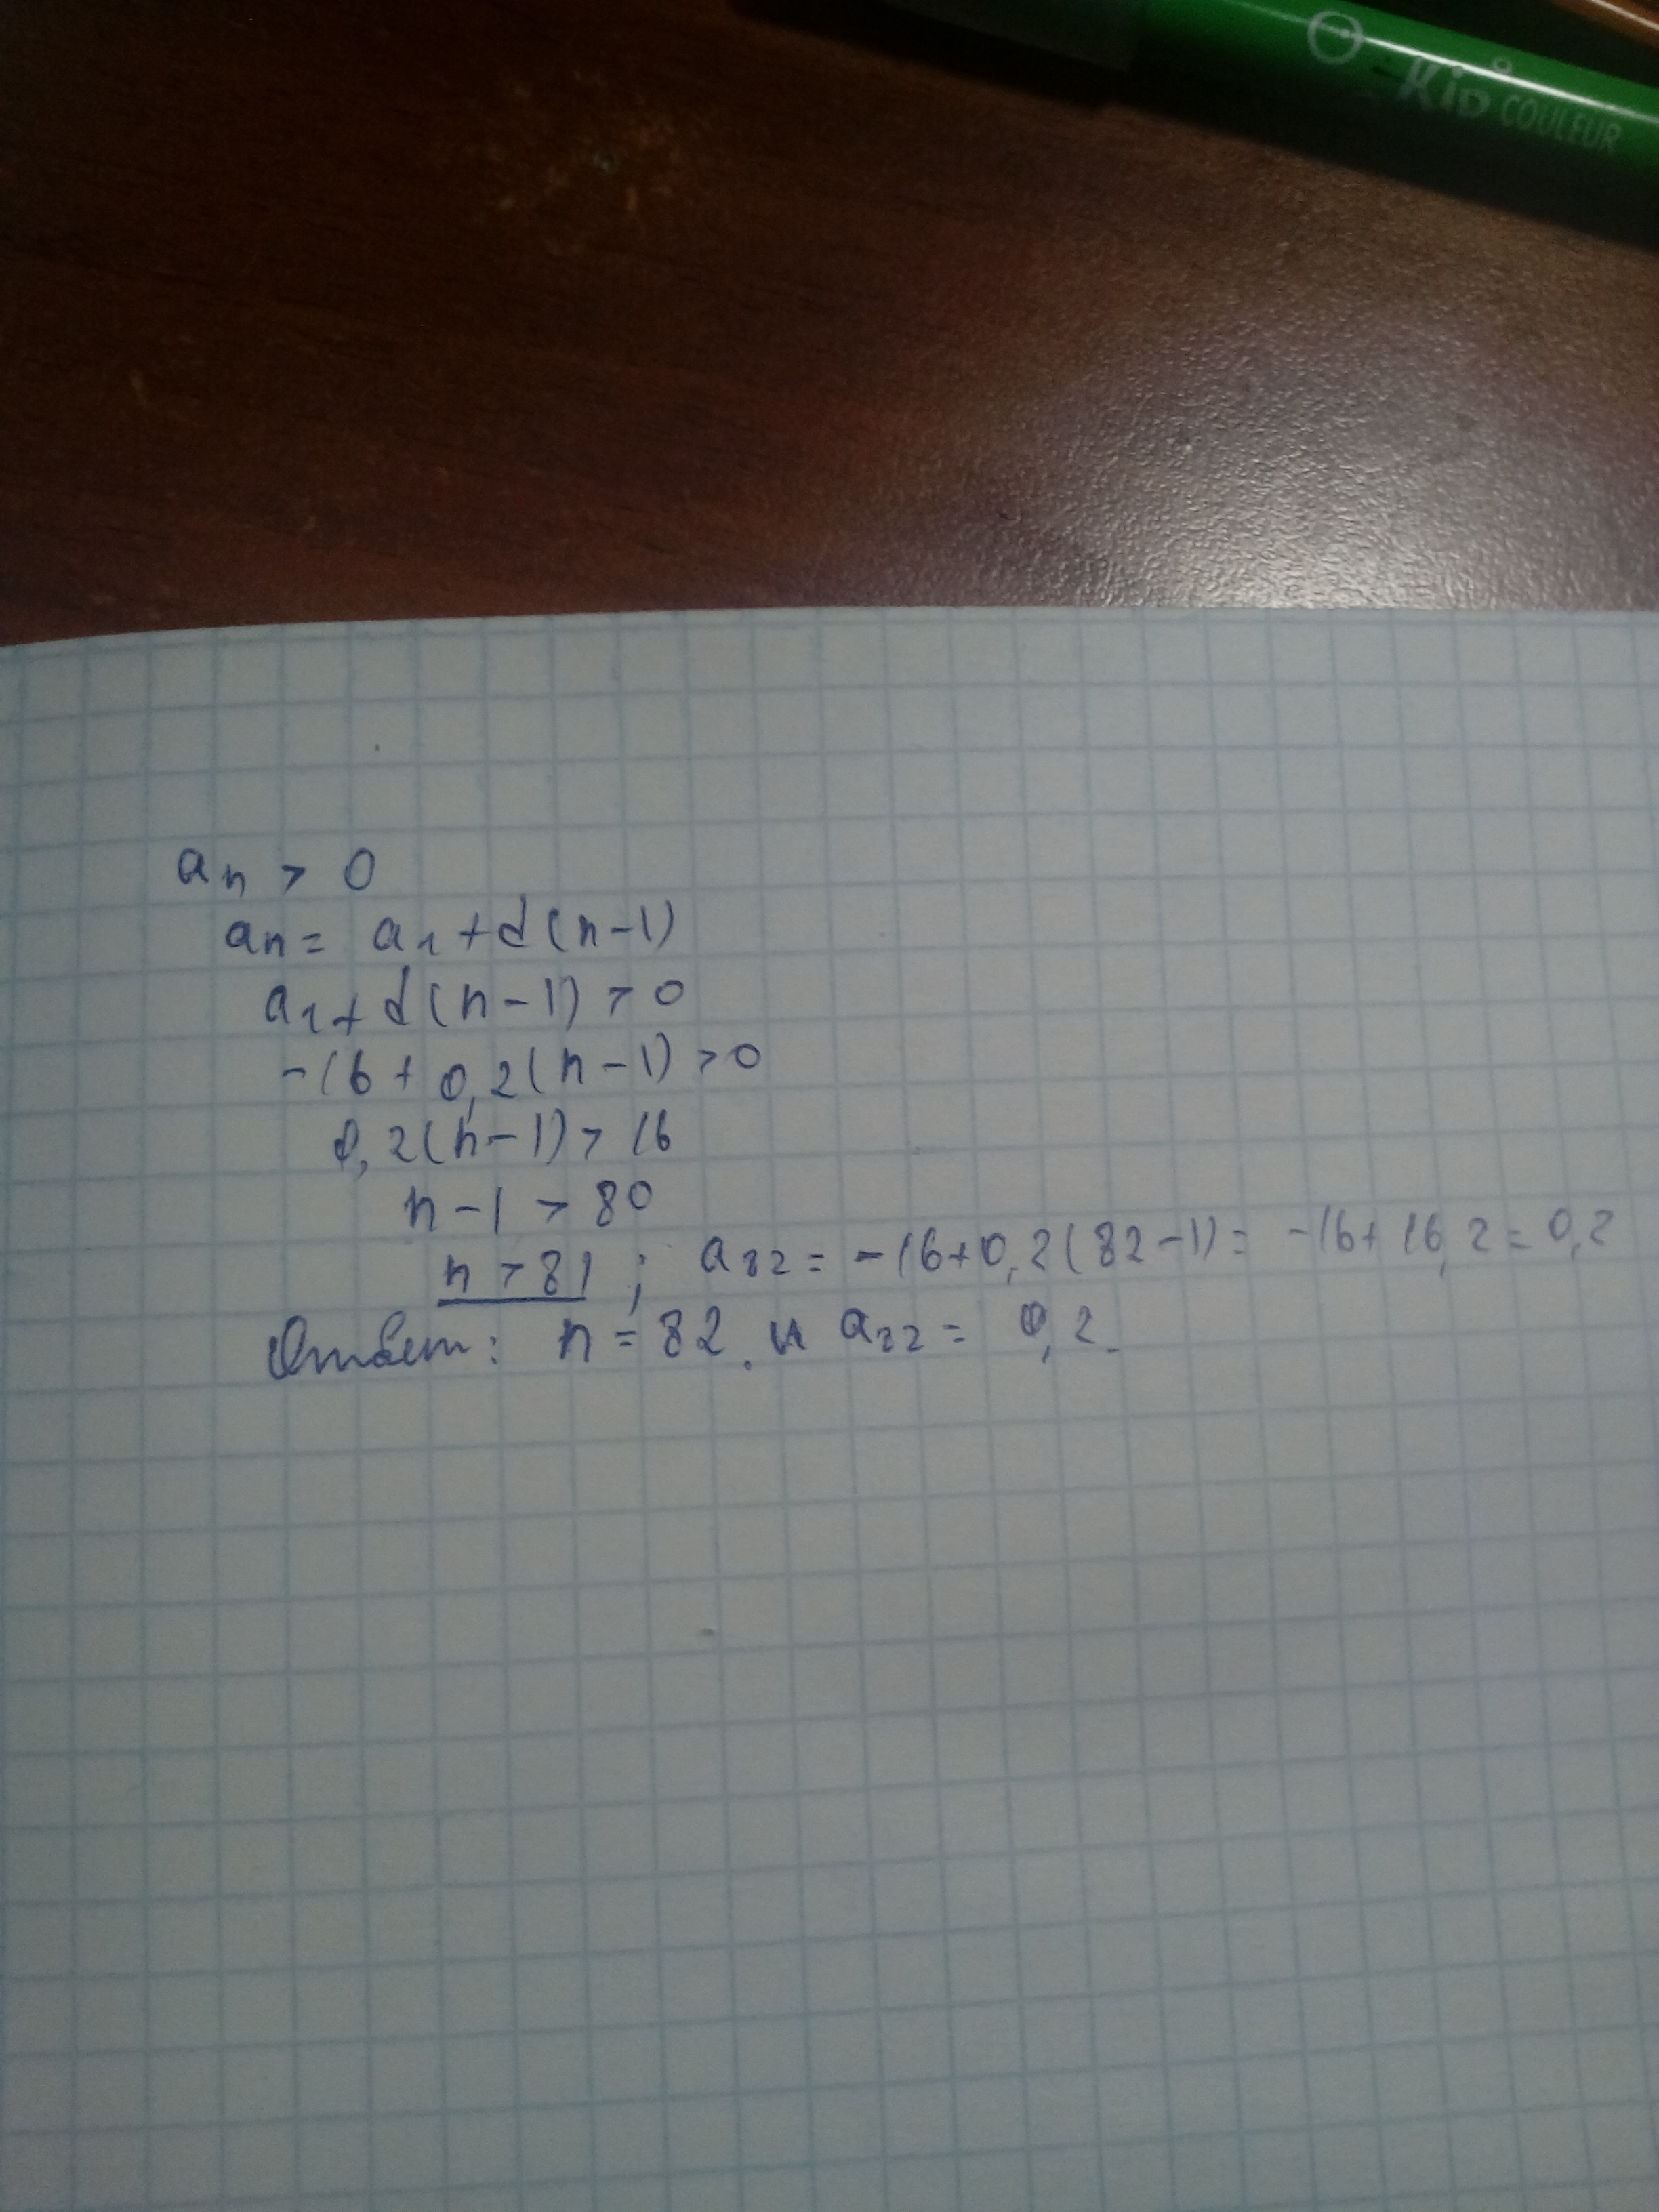 KiD COULEUR
aₙ > 0
aₙ = a₁ + d(n-1)
a₁ + d(n-1) > 0
-16 + 0,2(n-1) > 0
0,2(n-1) > 16
n-1 > 80
n > 81 ; a₈₂ = -16+0,2(82-1) = -16+16,2 = 0,2
Ответ: n = 82. и a₈₂ = 0,2.